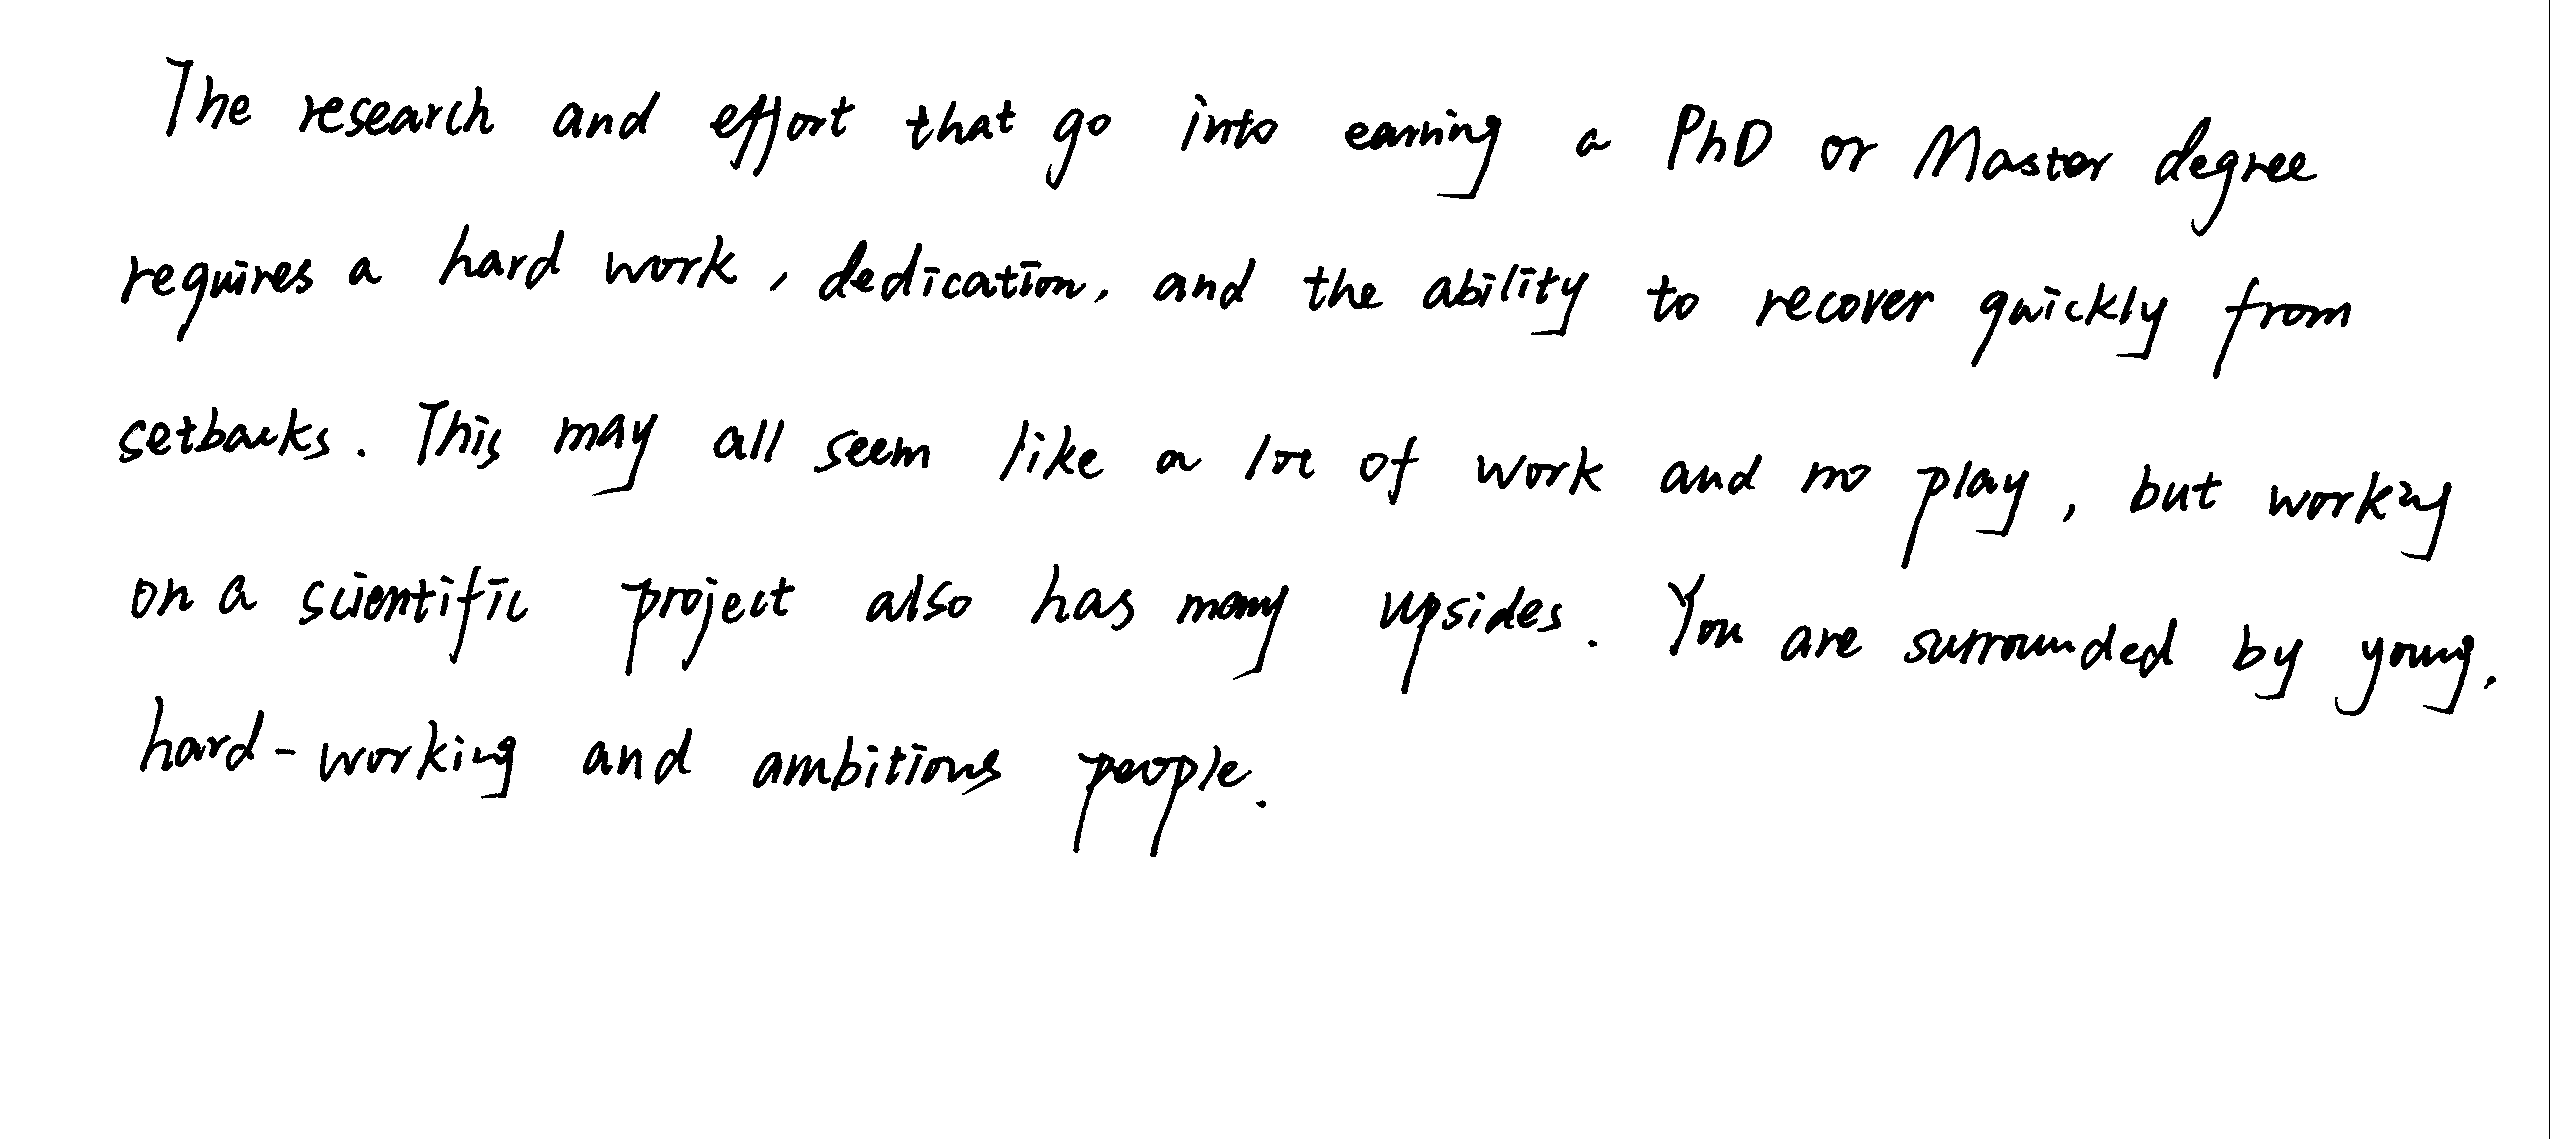 The research and effort that go into earning a PhD or Master degree
requires a hard work, dedication, and the ability to recover quickly from
setbacks. This may all seem like a lot of work and no play, but working
on a scientific project also has many upsides. You are surrounded by young,
hard-working and ambitious people.